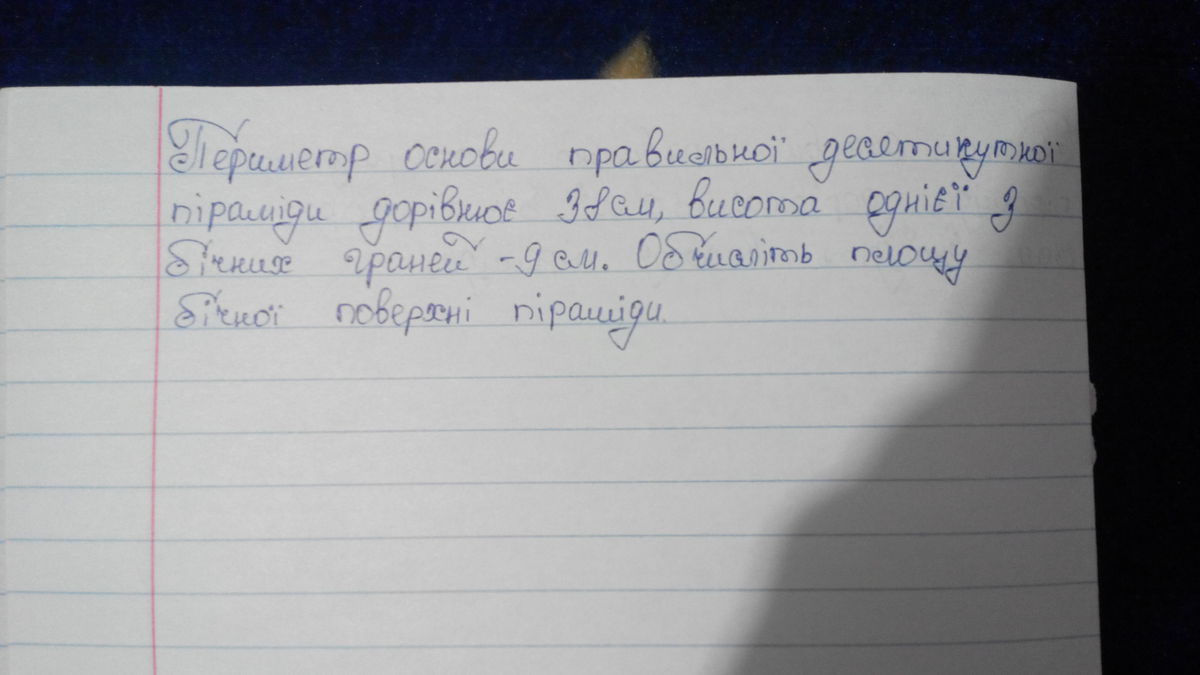 Периметр основи правильної десятикутної
піраміди дорівнює 38 см, висота однієї з
бічних граней - 9 см. Обчисліть площу
бічної поверхні піраміди.